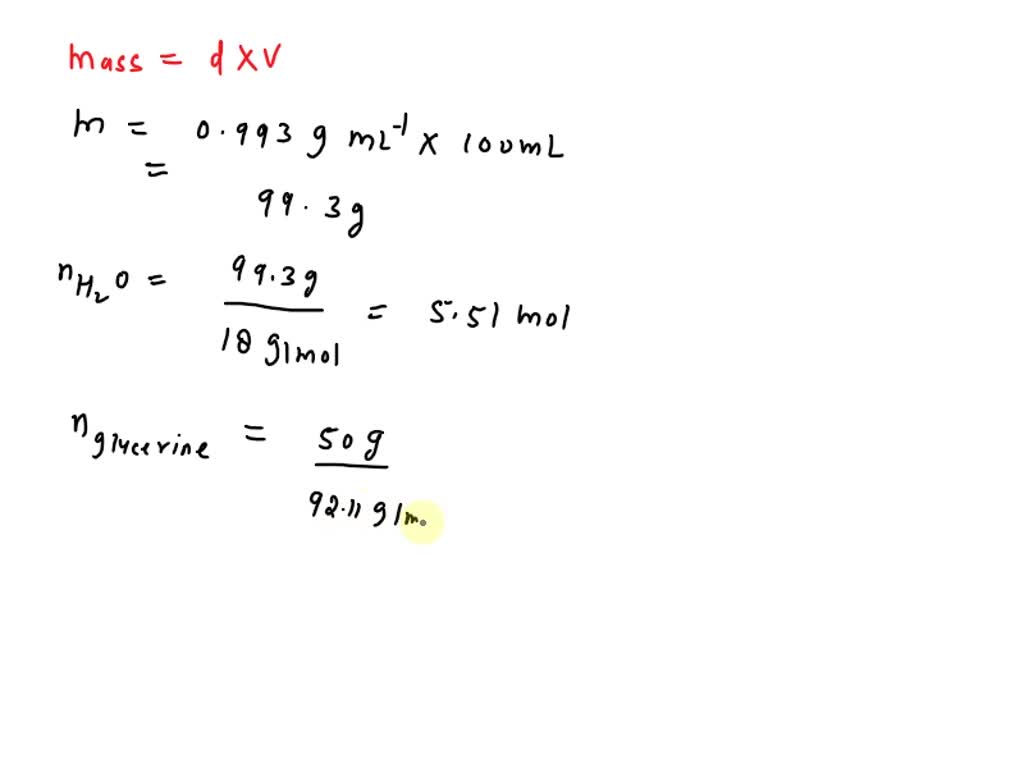 mass = d X V
m = 0.993 g mL⁻¹ X 100 mL
=
99.3 g
nH₂O = 99.3 g / 18 g/mol = 5.51 mol
nglycerine = 50 g / 92.11 g/m